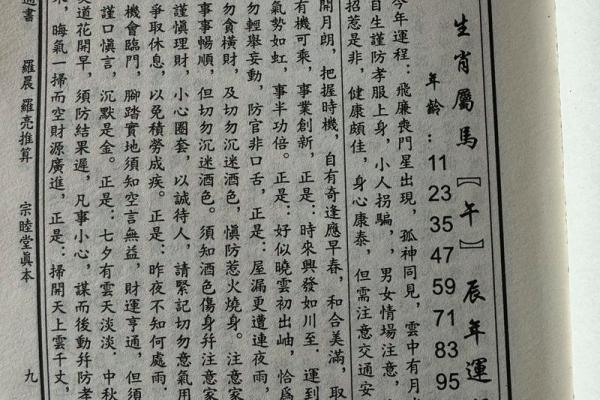 生肖屬馬【午】辰年運
年齡：11 23 35 47 59 71 83 95
今年運程：飛廉喪門星出現，孤神同見，雲中有月
自生謹防孝服上身，小人拐騙，男女情場注意，
招惹是非，健康頗佳，身心康泰，但需注意交通安
開月朗，把握時機，自有奇逢應早春，和合美滿，取
有機可乘，事業創新，正是：時來興發如川至．運到
氣勢如虹，事半功倍。正是：好似曉雲初出岫，恰爲
勿輕舉妄動，防官非口舌，正是：屋漏更遭連夜雨，
勿貪橫財，及切勿沉迷酒色，慎防惹火燒身。注意家
事事暢順，但切勿沉迷酒色。須知酒色傷身幷注意家
謹慎理財，小心圈套，以誠待人，請緊記切勿意氣用
爭取休息，以免積勞成疾。正是：昨夜不知何處雨．
機會臨門，腳踏實地須知空言無益，財運亨通，但須
謹口慎言，沉默是金。正是：七夕有雲天淡淡．中秋
道花開早，須防結果遲，凡事小心，謀而後動幷防孝
，晦氣一掃而空財源廣進，正是：掃開天上雲千丈，
通書 羅晨 羅亮推算 宗睦堂眞本 九